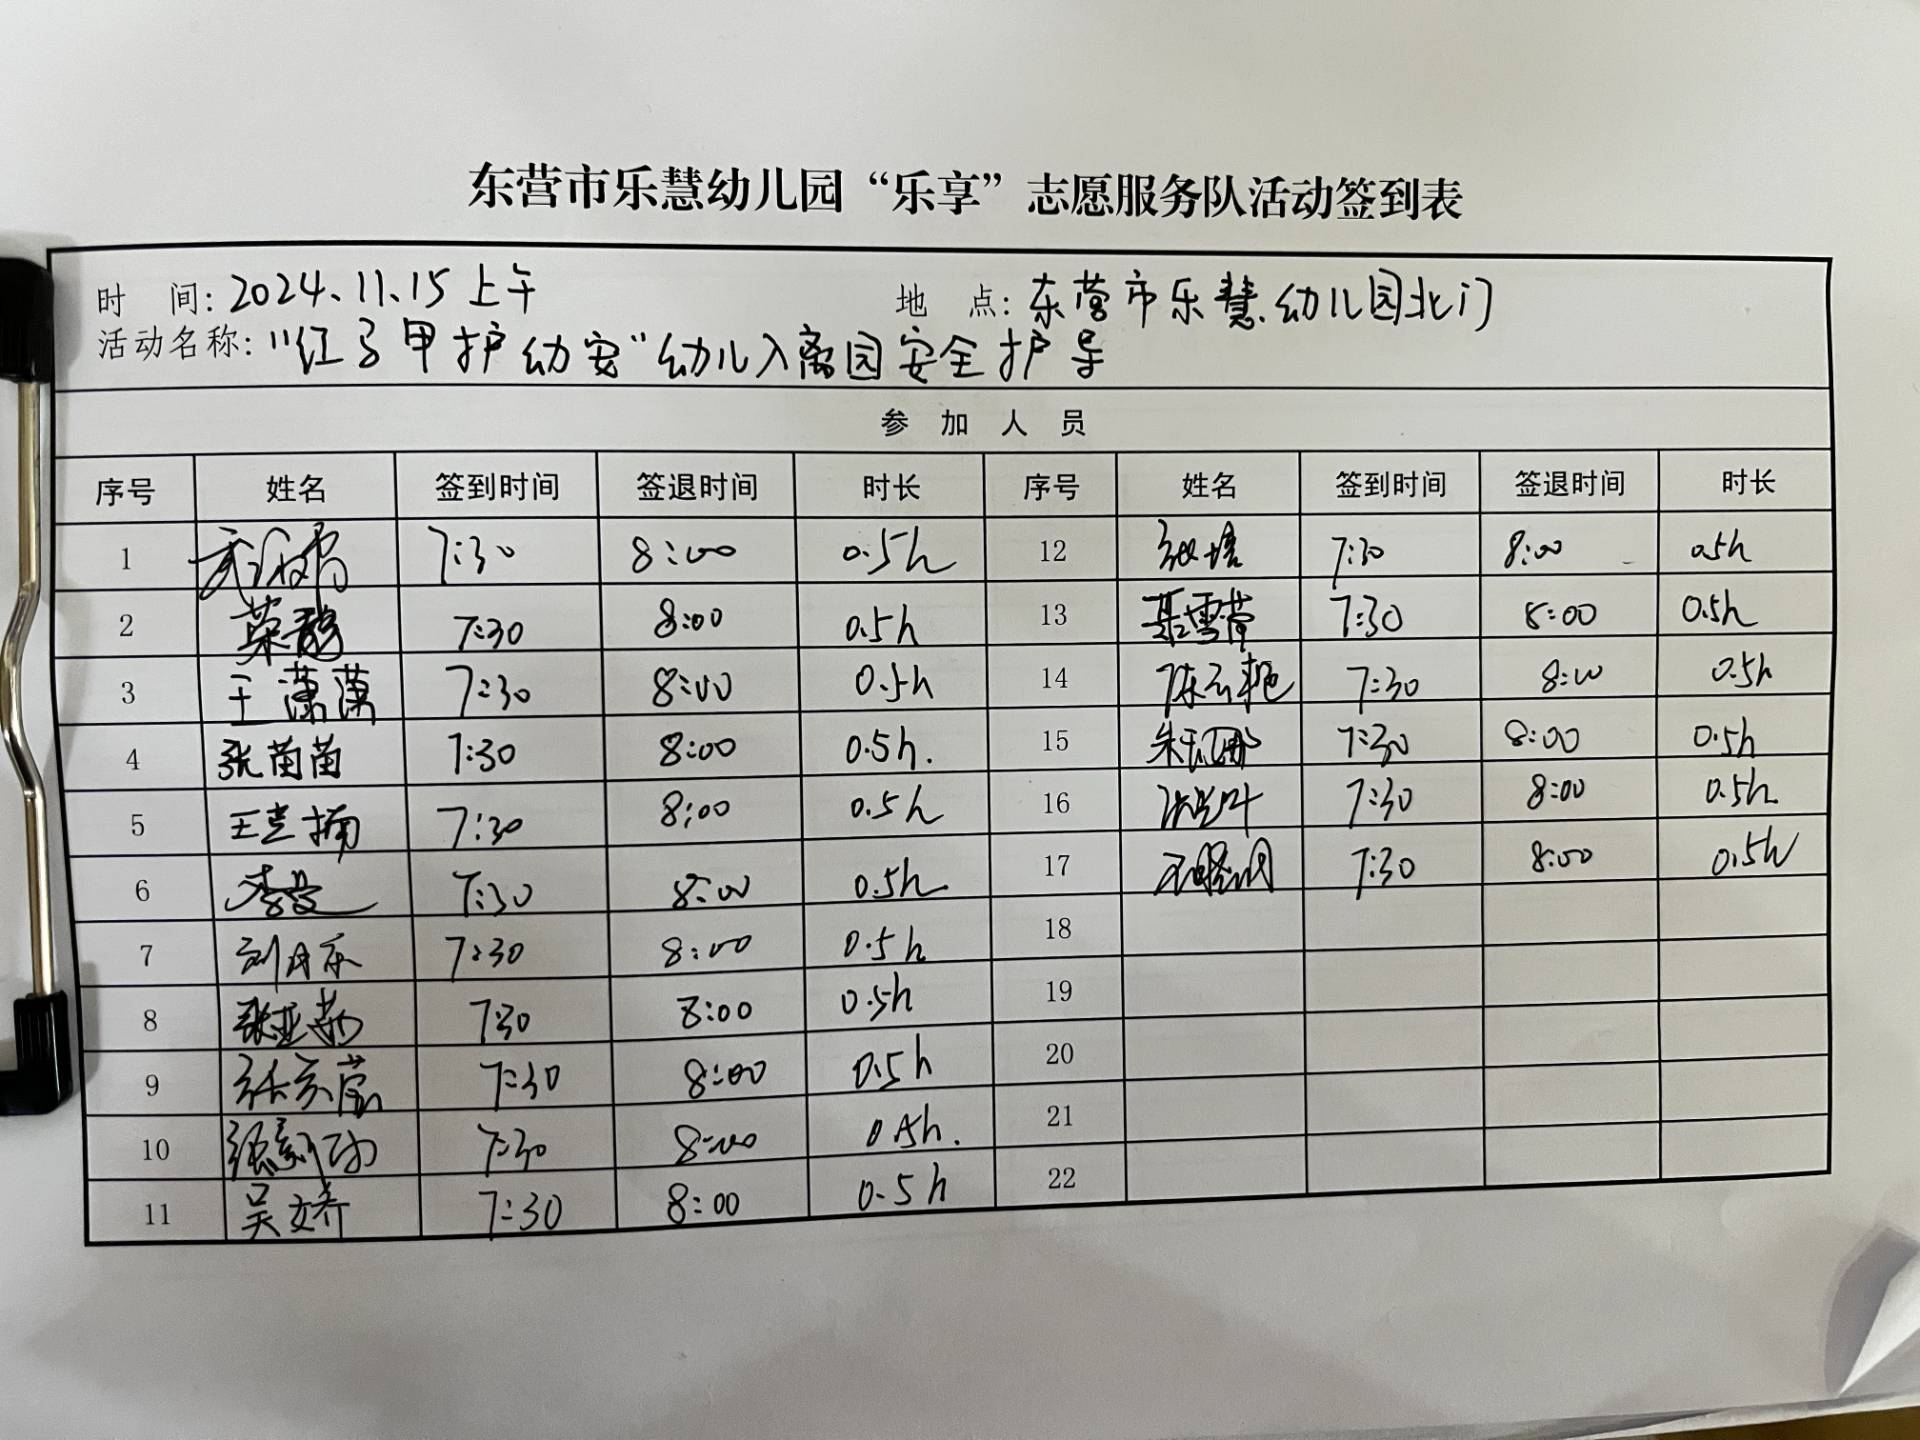 东营市乐慧幼儿园“乐享”志愿服务队活动签到表
时 间：2024.11.15上午 地 点：东营市乐慧幼儿园北门
活动名称：“红马甲护幼安”幼儿入离园安全护导
参 加 人 员
序号 姓名 签到时间 签退时间 时长 序号 姓名 签到时间 签退时间 时长
1 7:30 8:00 0.5h 12 张培 7:30 8:00 0.5h
2 荣 7:30 8:00 0.5h 13 聂雪营 7:30 8:00 0.5h
3 王潇潇 7:30 8:00 0.5h 14 陈云艳 7:30 8:00 0.5h
4 张苗苗 7:30 8:00 0.5h. 15 朱 娜 7:30 8:00 0.5h
5 王 楠 7:30 8:00 0.5h 16 7:30 8:00 0.5h
6 李旻 7:30 8:00 0.5h 17 7:30 8:00 0.5h
7 刘丹乐 7:30 8:00 0.5h 18
8 张亚茹 7:30 8:00 0.5h 19
9 张 莹 7:30 8:00 0.5h 20
10 7:30 8:00 0.5h. 21
11 吴文娇 7:30 8:00 0.5h 22